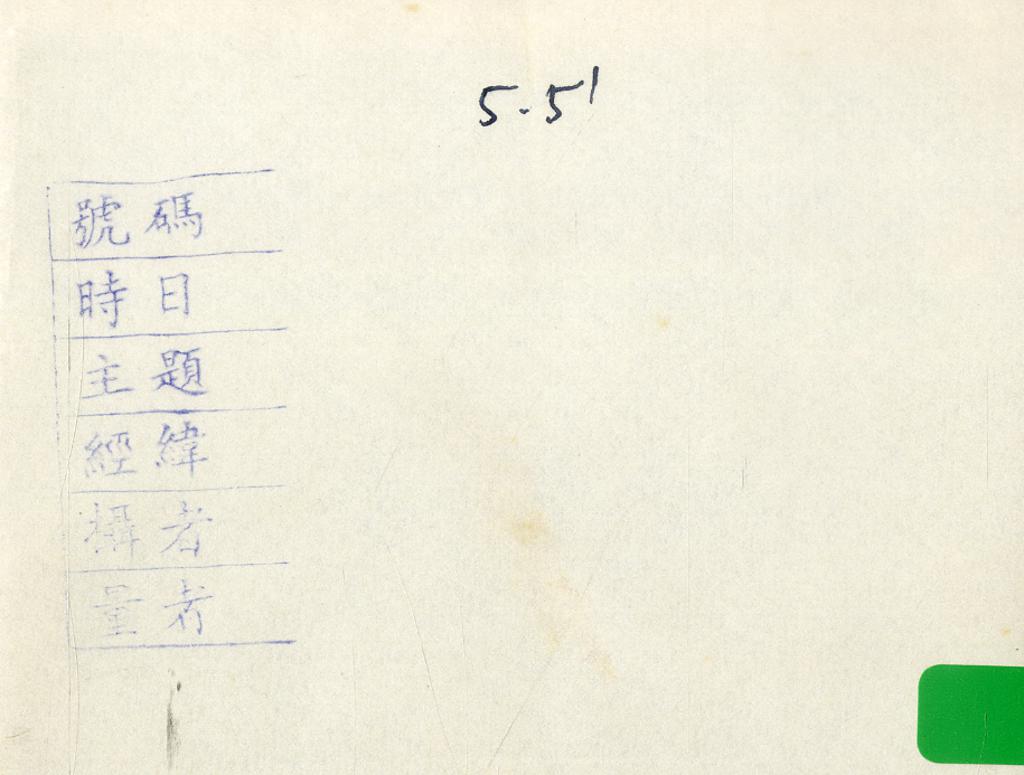 5-51
號碼
時日
主題
經緯
攝者
量者